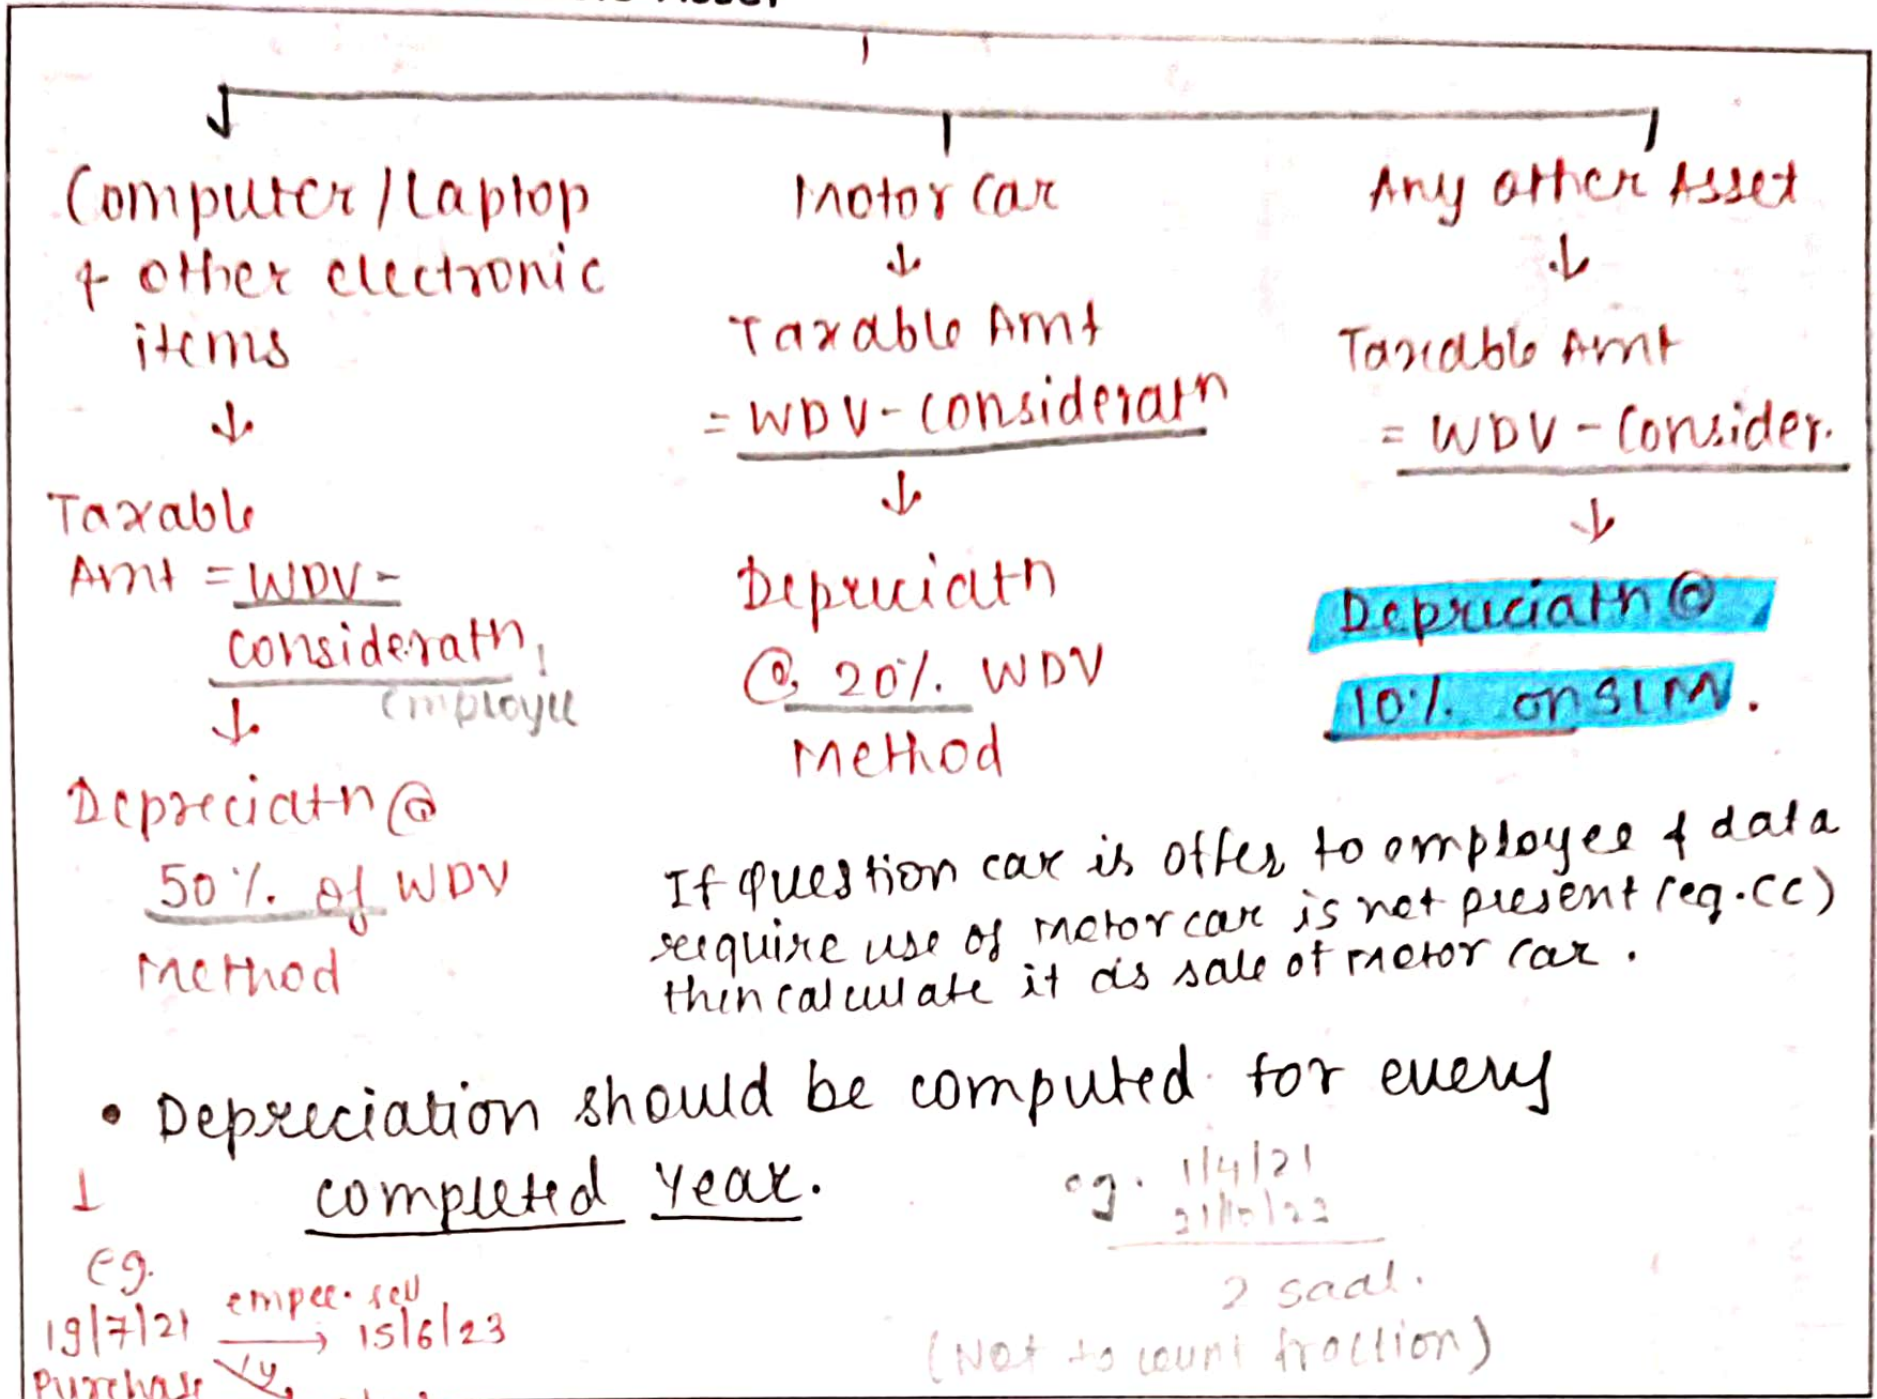 Computer/Laptop
& other electronic
items
Taxable
Amt = WDV -
consideratn
employee
Depreciatn @
50% of WDV
Method
Motor car
Taxable Amt
= WDV - consideratn
Depreciatn
@ 20% WDV
Method
Any other Asset
Taxable Amt
= WDV - Consider.
Depreciatn @
10% on SLM.
If question car is offer to employee & data
require use of motor car is not present (eg. CC)
then calculate it as sale of motor car.
• Depreciation should be computed for every
completed year.
eg. 1/4/21
2 saal.
(Not to count fraction)
eg.
19/7/21 empee. sell 15/6/23
Purchase 1y